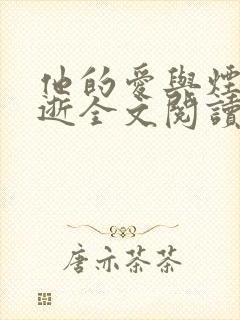 他的愛與煙
逝全文閱讀
唐亦茶茶